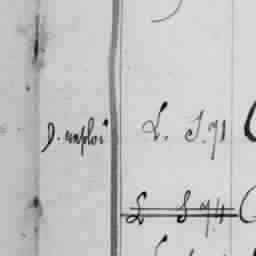 D. emploi L. S. 71
L S 74